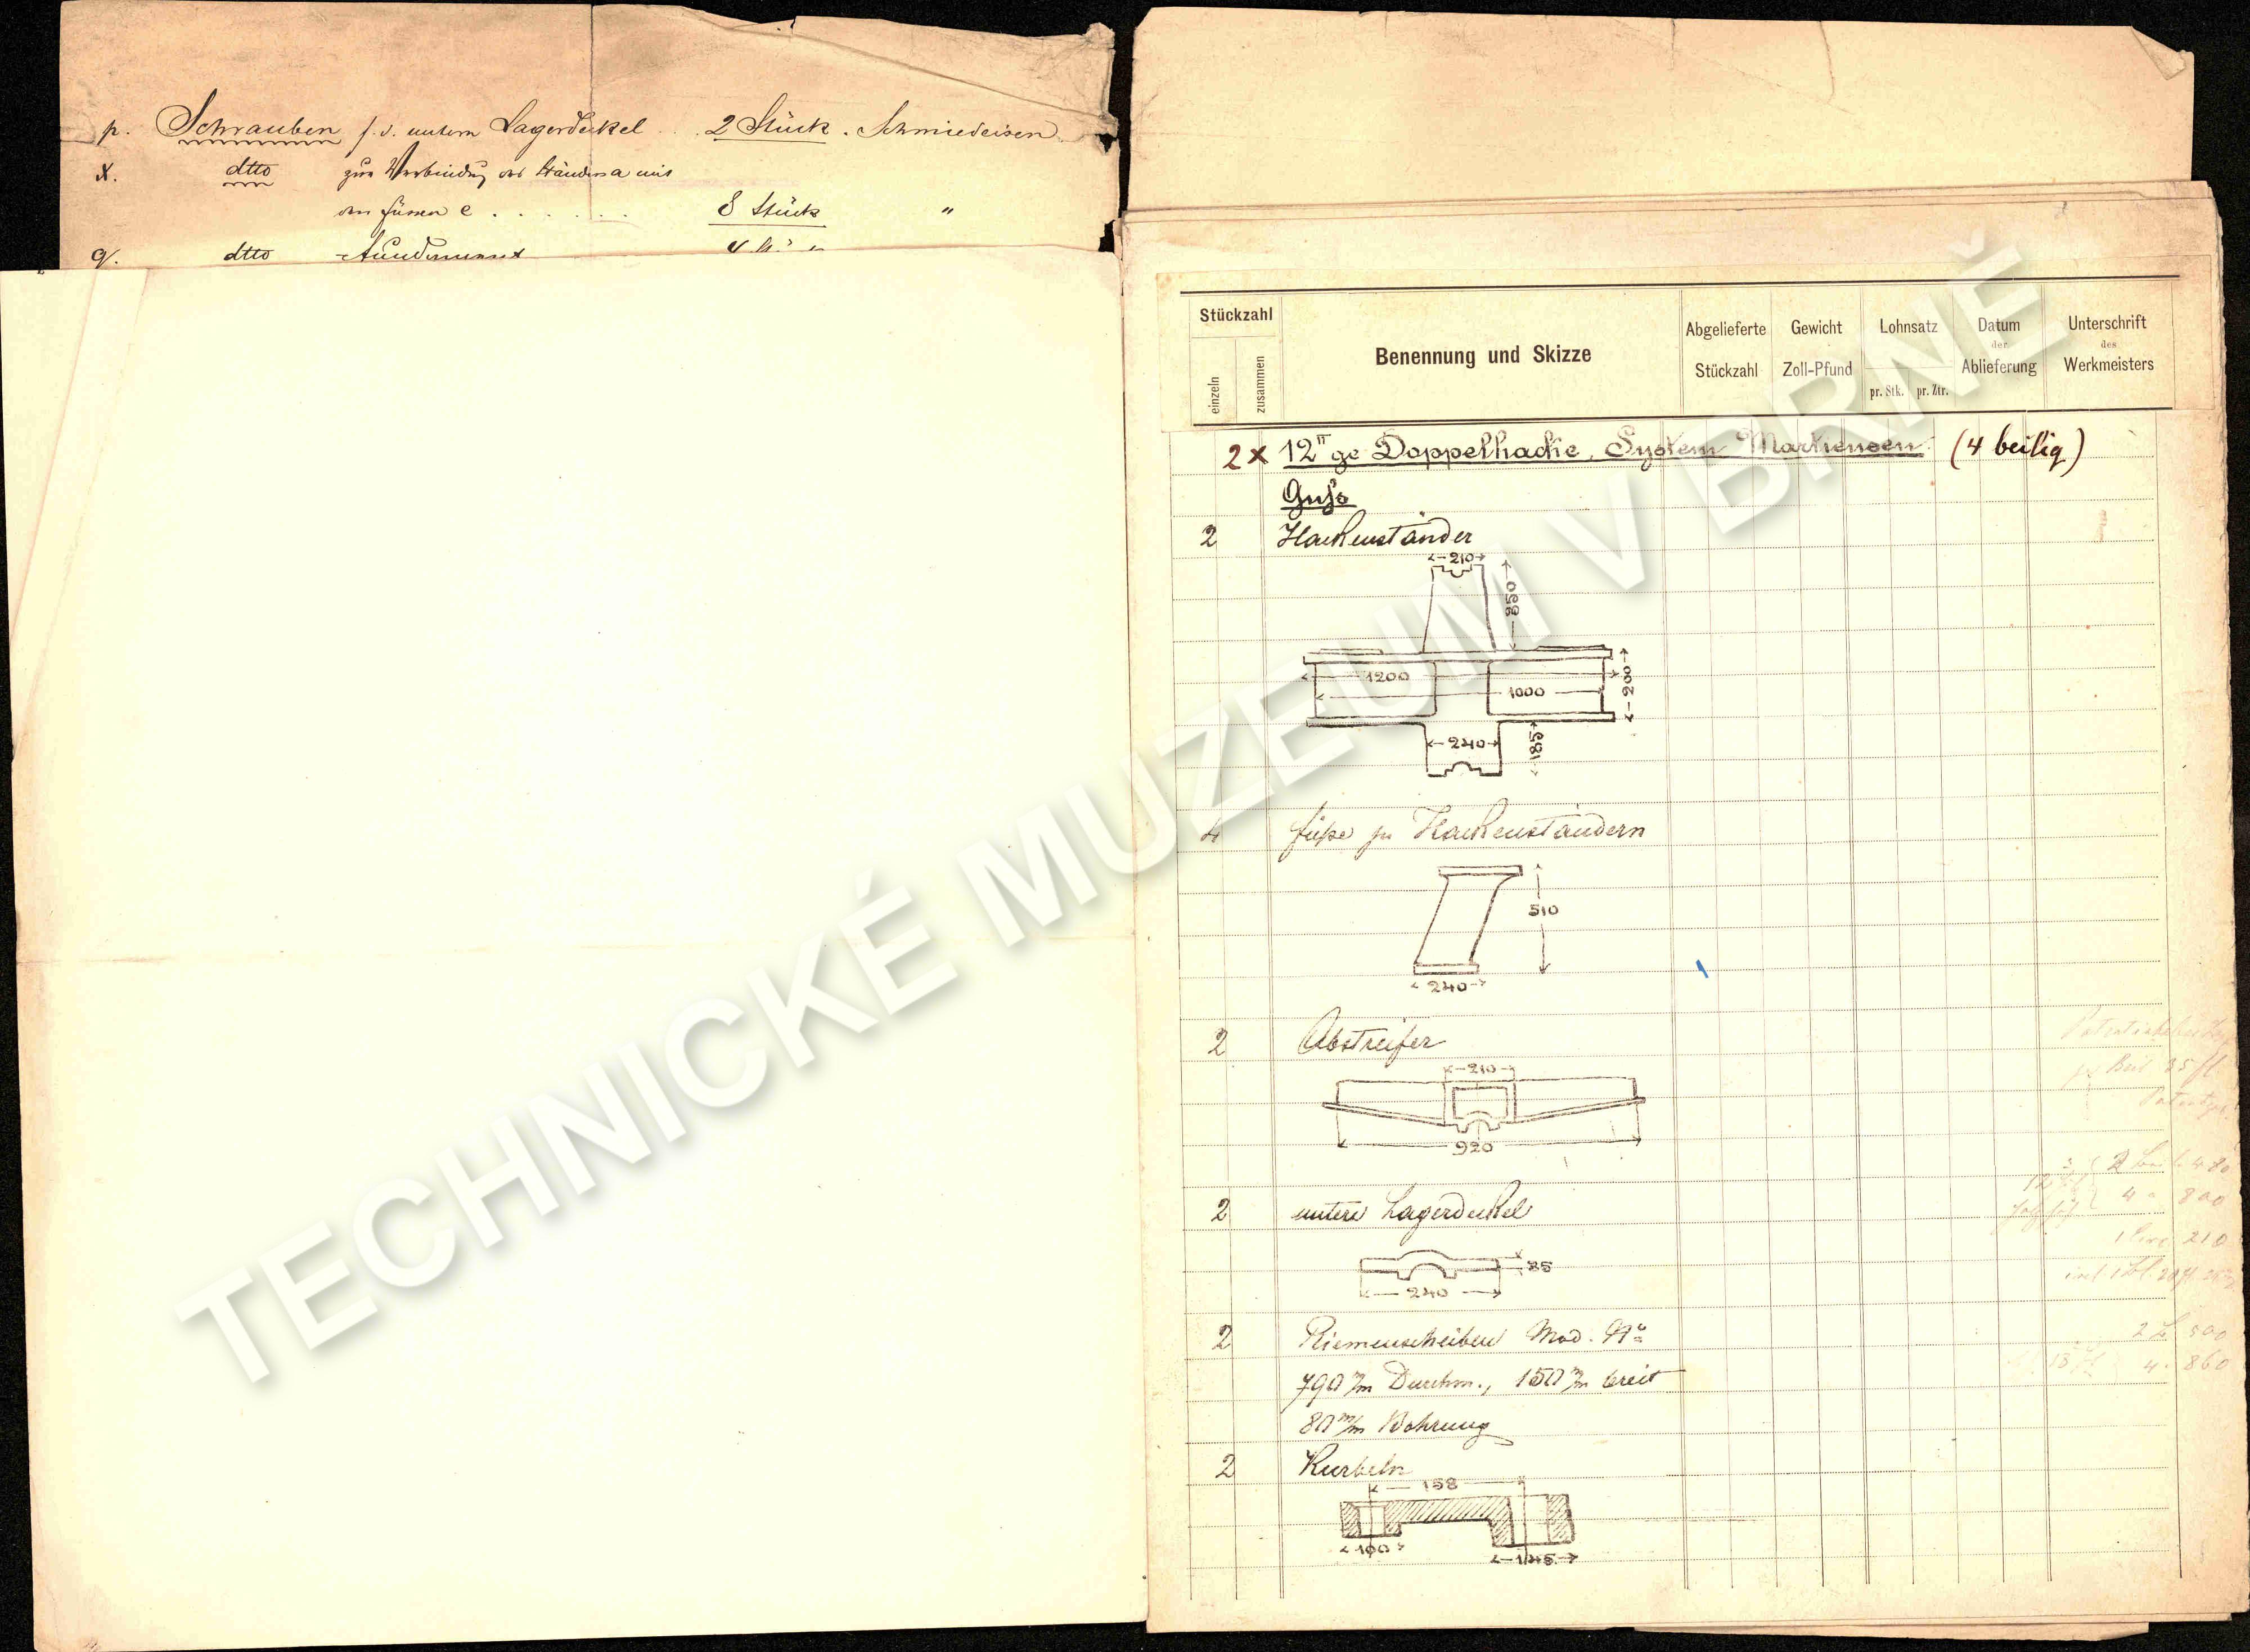 p. Schrauben f. d. untern Lagerdeckel . . 2 Stück . Schmiedeisen
x. dtto zur Verbindung des Ständers a mit
den Füssen e . . . . . . 8 Stück "
q. dtto
Stückzahl
einzeln
zusammen
Benennung und Skizze
Abgelieferte
Stückzahl
Gewicht
Zoll-Pfund
Lohnsatz
pr. Stk. pr. Ztr.
Datum
der
Ablieferung
Unterschrift
des
Werkmeisters
2x 12"ge Doppelhacke, System Martiensen. (4 beilig)
Guß
2 Hackenständer
210
850
1200
1000
200
240
185
4 Füße zu Hackenständern
510
240
2 Abstreifer
210
920
2 untere Lagerdeckel
25
240
2 Riemenscheiben Mod. No
790 m/m Durchm., 150 m/m breit
80 m/m Bohrung
2 Kurbeln
158
100
145
TECHNICKÉ MUZEUM V BRNĚ